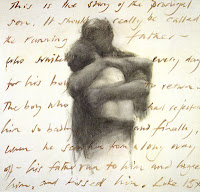 This is the story of the prodigal
son. It should really be called
the running father –
who waited every day
for his return.
The boy who had rejected
him so badly and finally,
when he saw him a long way
off – his father ran to him and
him, and kissed him. Luke 15